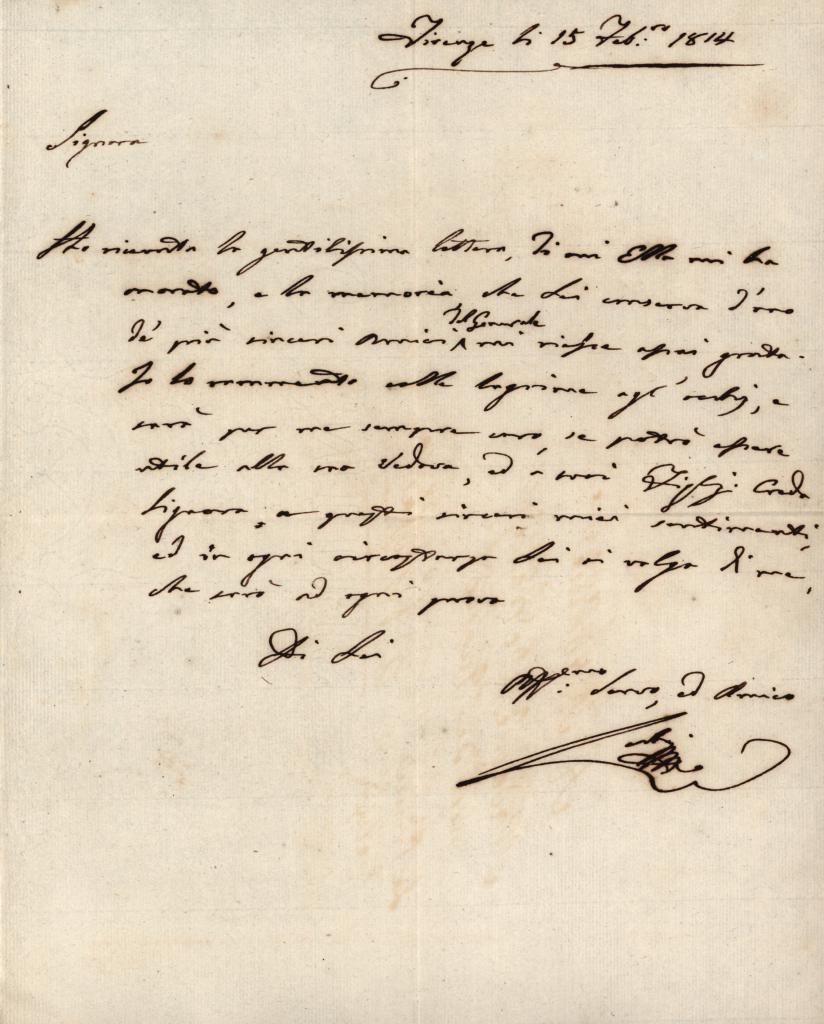 Firenze li 15 Feb.ro 1814
Signora
Ho ricevuta la gentilissima lettera, di cui Ella mi ha
onorato, e la memoria che Lei conserva d'uno
de' più sinceri Amici del Generale mi riesce assai grata.
Io lo rammento colle lagrime agl'occhj, e
sarà per me sempre caro, se potrò essere
utile alla sua Vedova, ed a suoi Figlj. Creda
Signora, a questi sinceri miei sentimenti,
ed in ogni circostanza Lei si valga di me,
che sarò ad ogni prova
Di Lei
Servo, ed Amico